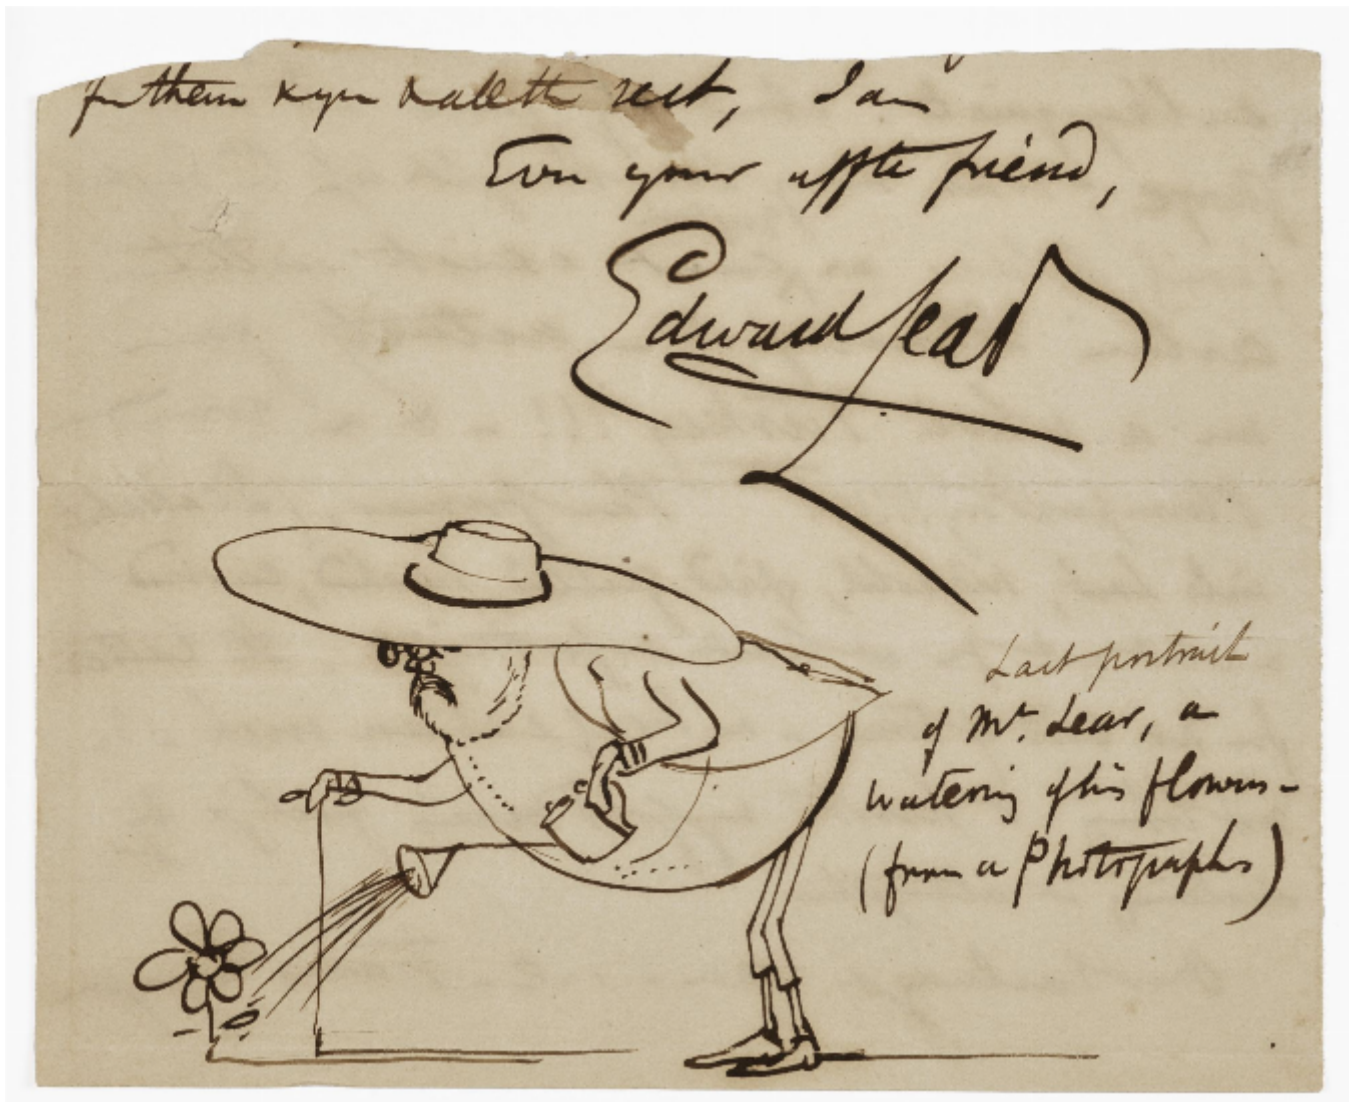 for them & you & all the rest, I am
Ever your affte friend,
Edward Lear
Last portrait
of Mr. Lear, a
watering of his flowers –
(from a Photographs)